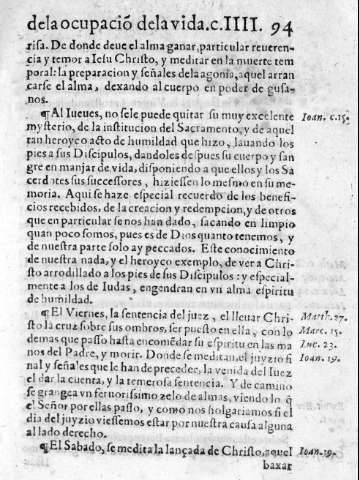 de la ocupació de la vida. c. IIII. 94
risa. De donde deue el alma ganar, particular reueren-
cia y temor a Iesu Christo, y meditar en la muerte tem
poral: la preparacion y señales de la agonia, aquel arran
carse el alma, dexando al cuerpo en poder de gusa-
nos.
¶ Al Iueues, no se le puede quitar su muy excelente Ioan. c. 15.
mysterio, de la institucion del Sacramento, y de aquel
tan heroyco acto de humildad que hizo, lauando los
pies a sus Discipulos, dandoles despues su cuerpo y san
gre en manjar de vida, disponiendo a que ellos y los Sa
cerdotes sus successores, hiziessen lo mesmo en su me-
moria. Aqui se haze especial recuerdo de los benefi-
cios recebidos, de la creacion y redempcion, y de otros
que en particular se nos han dado, sacando en limpio
quan poco somos, pues es de Dios quanto tenemos, y
de nuestra parte solo ay peccados. Este conocimiento
de nuestra nada, y el heroyco exemplo, de ver a Chri-
sto arrodillado a los pies de sus Discipulos: y especial-
mente a los de Iudas, engendran en vn alma espiritu
de humildad.
¶ El Viernes, la sentencia del juez, el lleuar Chri- Matth. 27.
sto la cruz sobre sus ombros, ser puesto en ella, con lo Marc. 15.
demas que passo hasta encomẽdar su espiritu en las ma Luc. 23.
nos del Padre, y morir. Donde se meditan el juyzio fi- Ioan. 19.
nal y señales que le han de preceder, la venida del Iuez
el dar la cuenta, y la temerosa sentencia. Y de camino
se grangea vn feruorissimo zelo de almas, viendo lo q̃
el Señor por ellas passo, y como nos holgariamos si el
dia del juyzio viessemos estar por nuestra causa alguna
al lado derecho.
¶ El Sabado, se medita la lançada de Christo, aquel Ioan. 19.
baxar